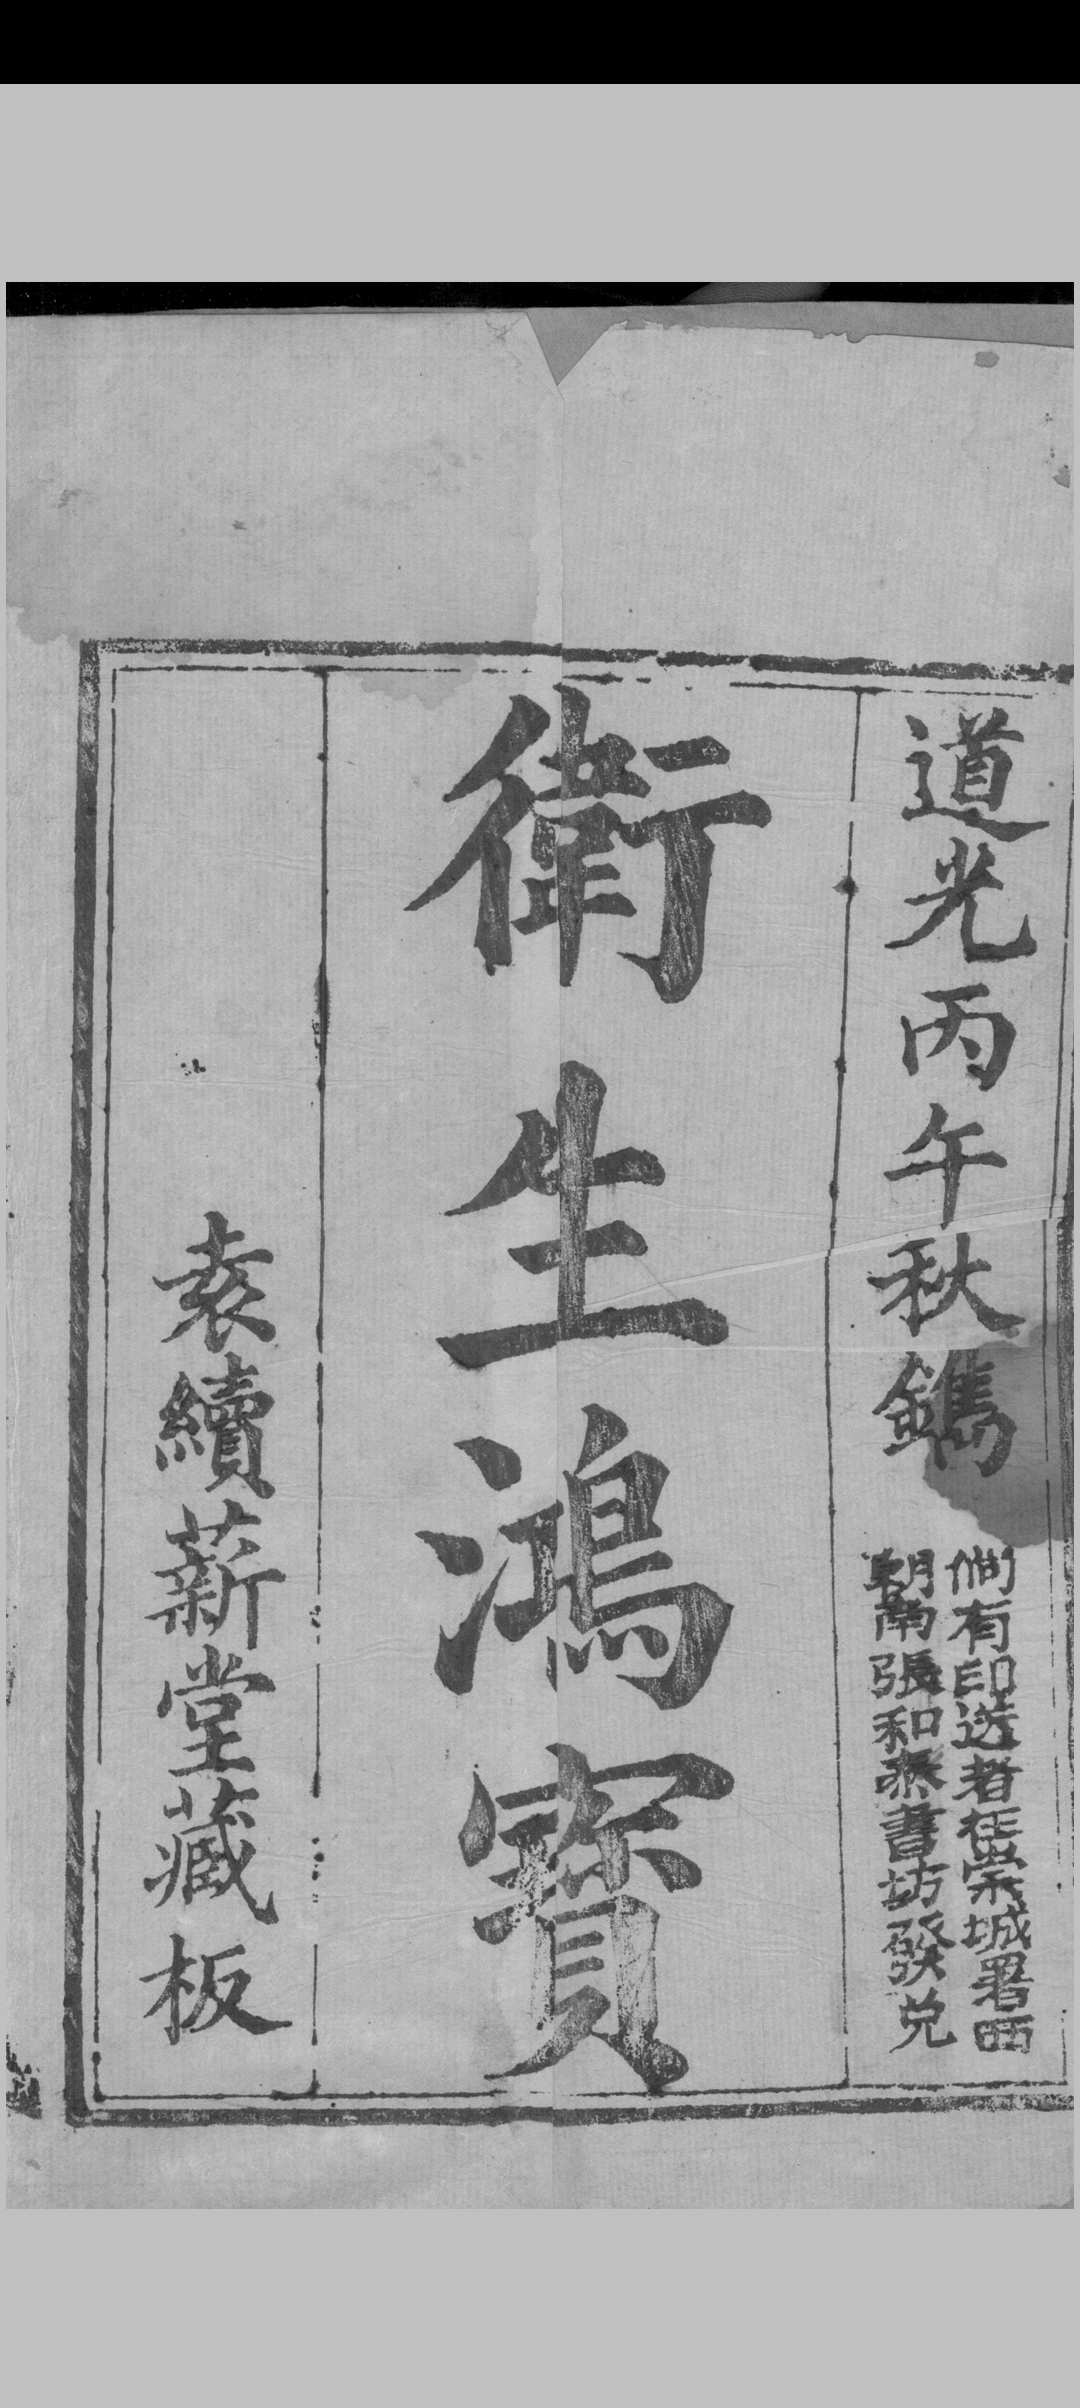 道光丙午秋鐫
倘有印送者在崇城署西
朝南張和泰書坊發兌
衛生鴻寶
袁續薪堂藏板